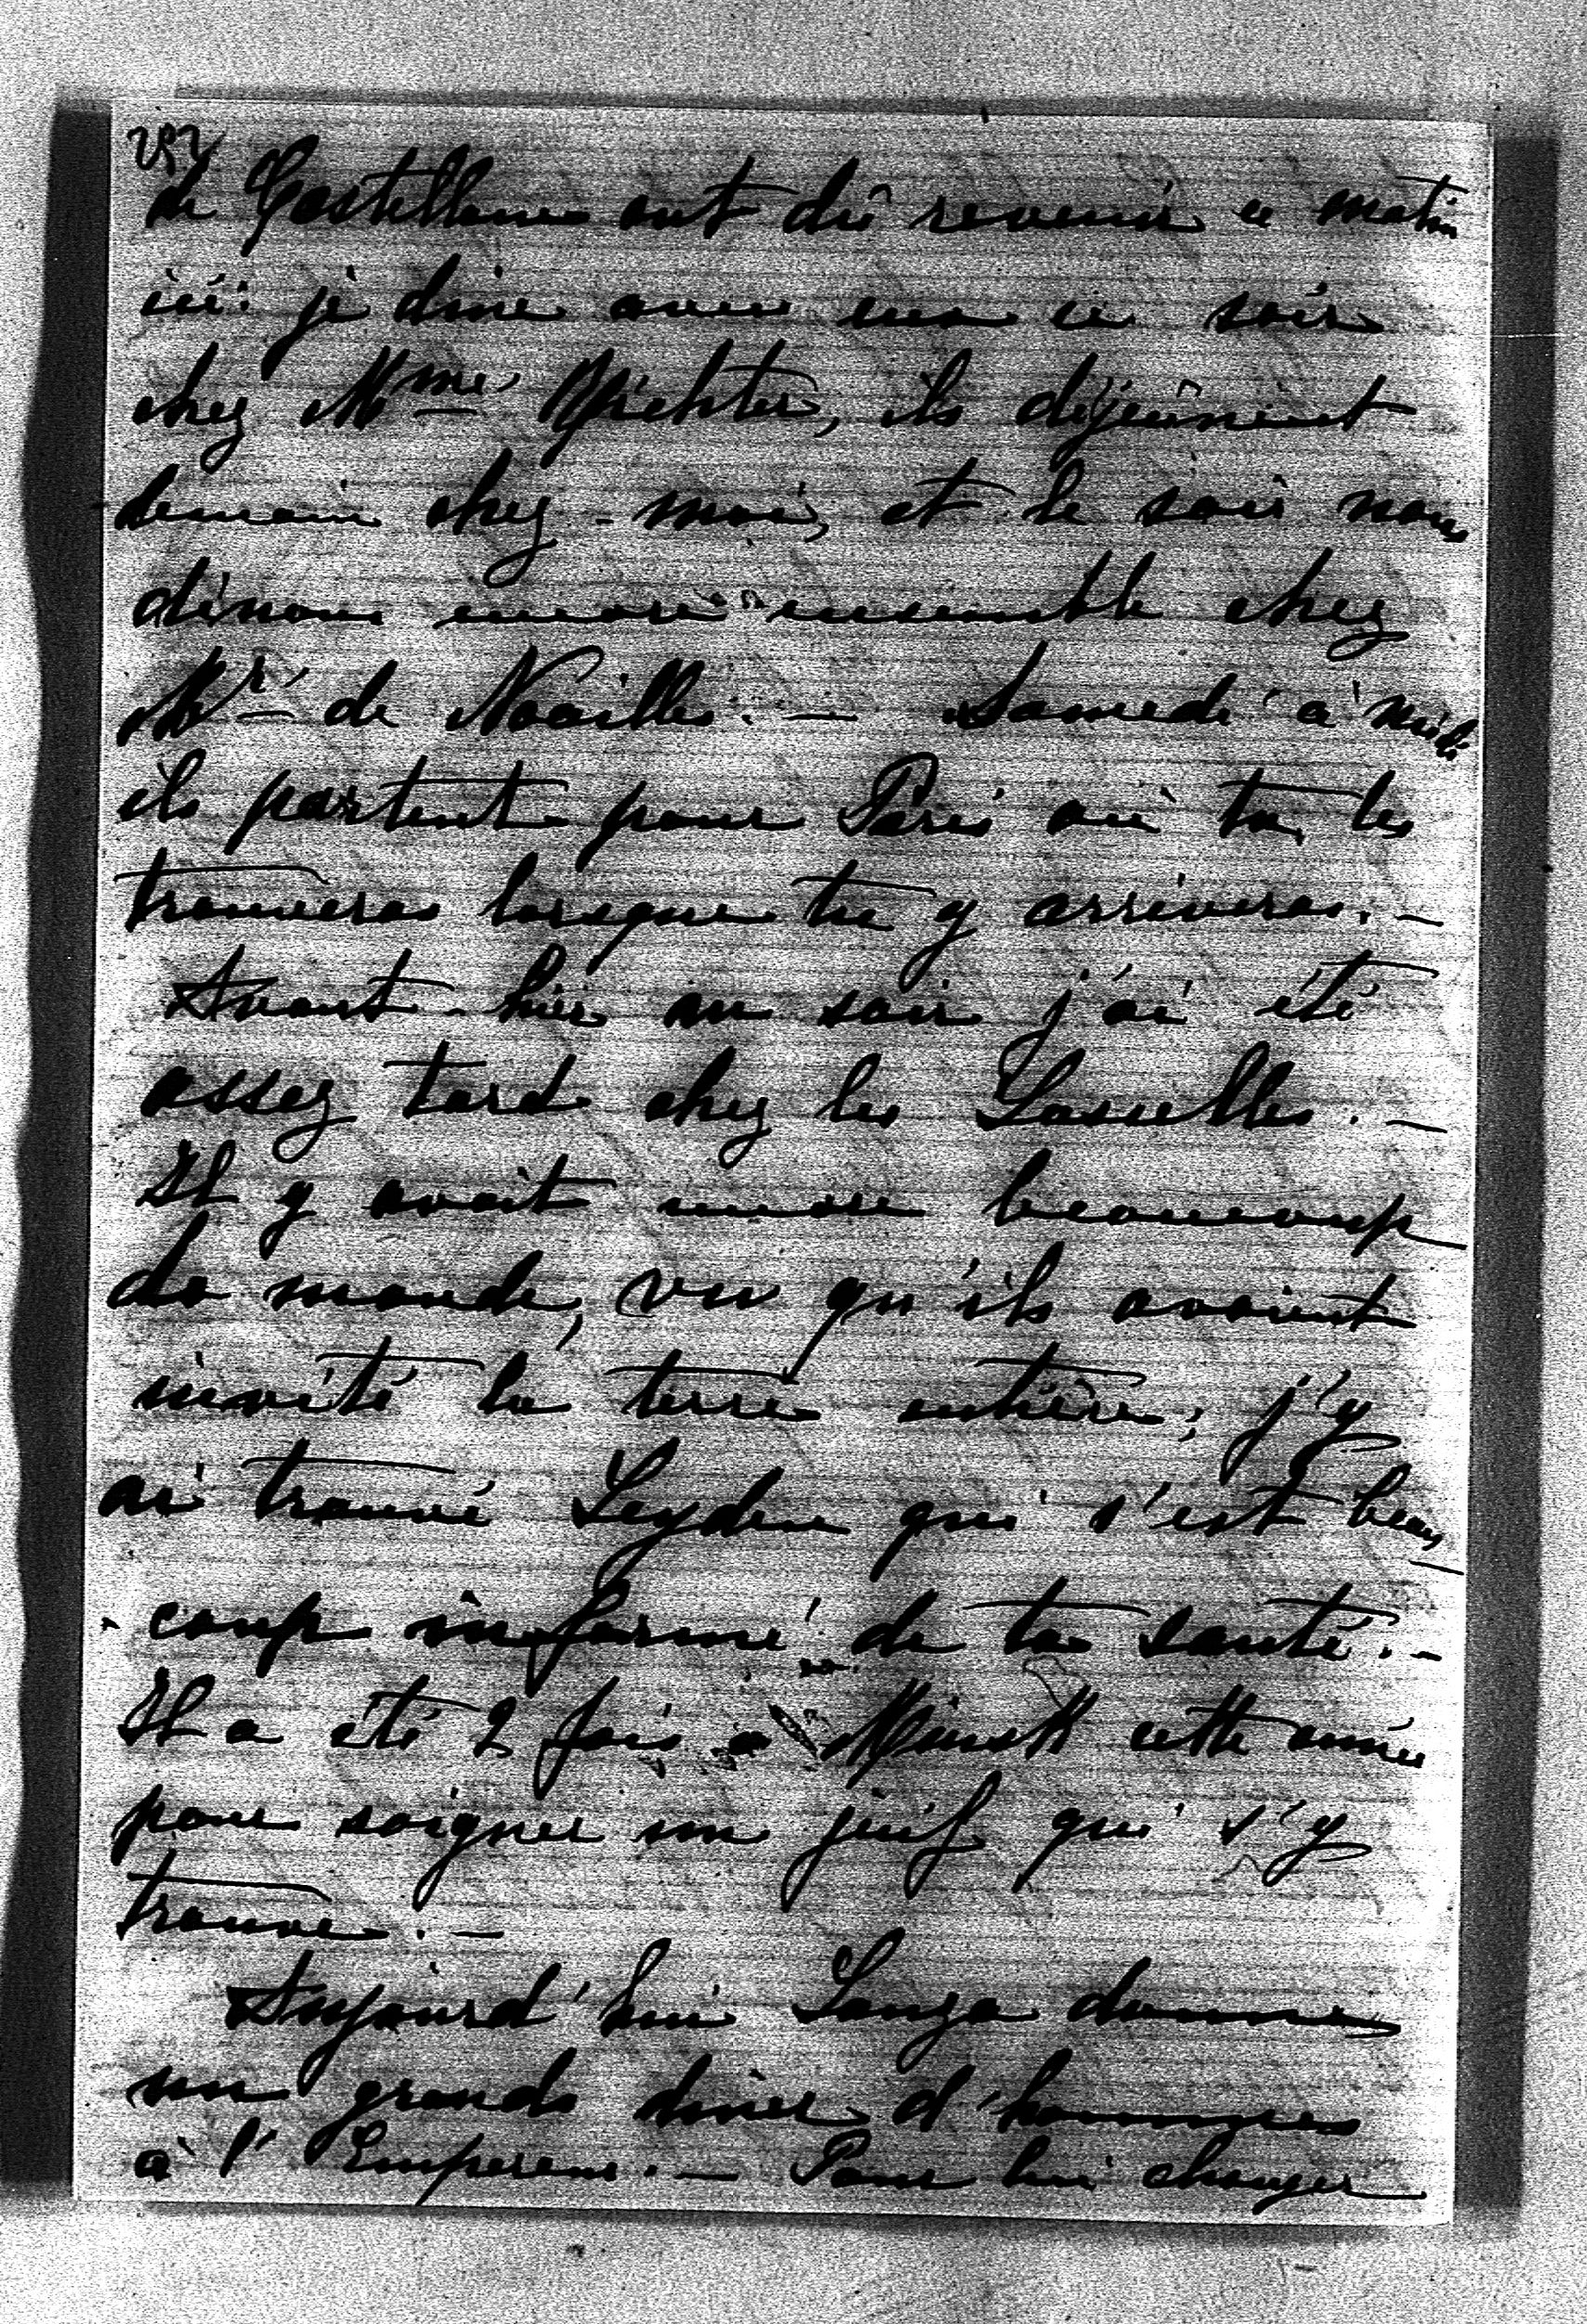 de Castellane ont dû revenir ce matin
ici: je dine avec eux ce soir
chez Mme Richter, ils déjeûnent
demain chez-moi, et le soir nous
dînons encore ensemble chez
Mr de Noailles. — Samedi à midi
ils partent pour Paris où tu les
trouveras lorsque tu y arriveras. —
Avant-hier au soir j'ai été
assez tard chez les Lascelles. —
Il y avait encore beaucoup
de monde, vu qu'ils avaient
invité la terre entière; j'y
ai trouvé Leyden qui s'est beau-
coup informé de ta santé. —
Il a été 2 fois à Minsk cette année
pour soigner un juif qui s'y
trouve. —
Aujourd'hui Lanza donne
un grand diner d'hommes
à l'Empereur. — Pour lui changer